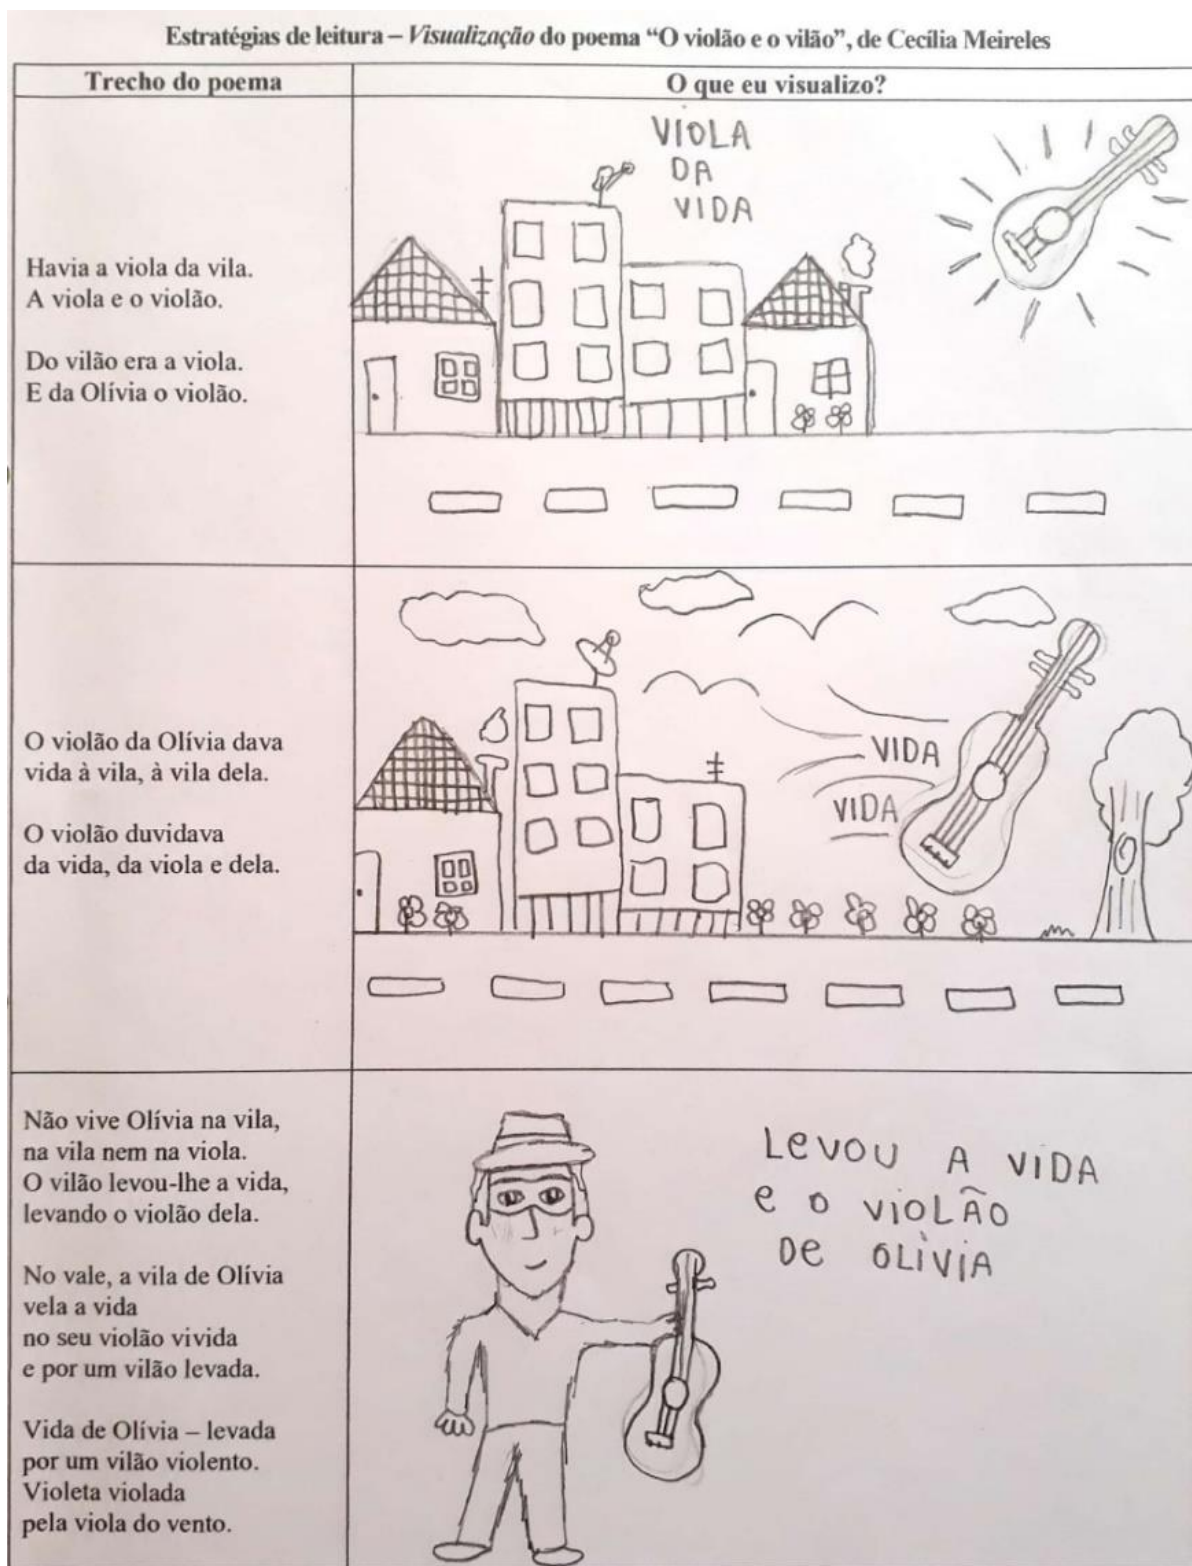 Estratégias de leitura – Visualização do poema “O violão e o vilão”, de Cecília Meireles
Trecho do poema
O que eu visualizo?
Havia a viola da vila.
A viola e o violão.
Do vilão era a viola.
E da Olívia o violão.
VIOLA
DA
VIDA
O violão da Olívia dava
vida à vila, à vila dela.
O violão duvidava
da vida, da viola e dela.
VIDA
VIDA
Não vive Olívia na vila,
na vila nem na viola.
O vilão levou-lhe a vida,
levando o violão dela.
No vale, a vila de Olívia
vela a vida
no seu violão vivida
e por um vilão levada.
Vida de Olívia – levada
por um vilão violento.
Violeta violada
pela viola do vento.
LEVOU A VIDA
E O VIOLÃO
DE OLÍVIA